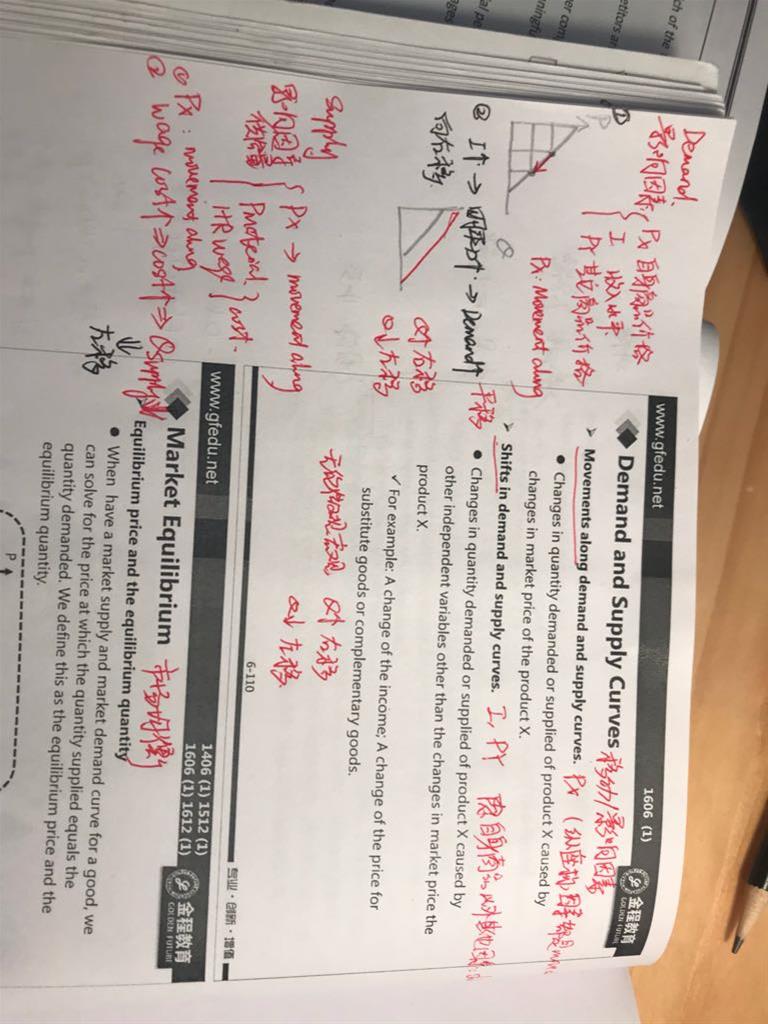 www.gfedu.net
1606 (1)
Demand and Supply Curves 移动/影响因素
金程教育
GOLDEN FUTURE
➢ Movements along demand and supply curves. Px
● Changes in quantity demanded or supplied of product X caused by
changes in market price of the product X.
➢ Shifts in demand and supply curves. I, PY
● Changes in quantity demanded or supplied of product X caused by
other independent variables other than the changes in market price the
product X.
✓ For example: A change of the income; A change of the price for
substitute goods or complementary goods.
Q↑ 右移
Q↓ 左移
6-110
专业·创新·增值
www.gfedu.net
1406 (1) 1512 (1)
1606 (1) 1612 (1)
Market Equilibrium 市场均衡
金程教育
GOLDEN FUTURE
Equilibrium price and the equilibrium quantity
● When have a market supply and market demand curve for a good, we
can solve for the price at which the quantity supplied equals the
quantity demanded. We define this as the equilibrium price and the
equilibrium quantity.
P
Demand
影响因素
Px 自身商品价格
I 收入水平
Py 其它商品价格
①
P
Q
Px: Movement along
② I↑ → 购买力↑ → Demand↑ 平移
向右移
Q↑ 右移
Q↓ 左移
Supply
影响因素
Px → movement along
Pmaterial
HR wage
cost
① Px: movement along
② wage cost↑ ⇒ cost↑ ⇒ Qsupply↓
⇓
左移